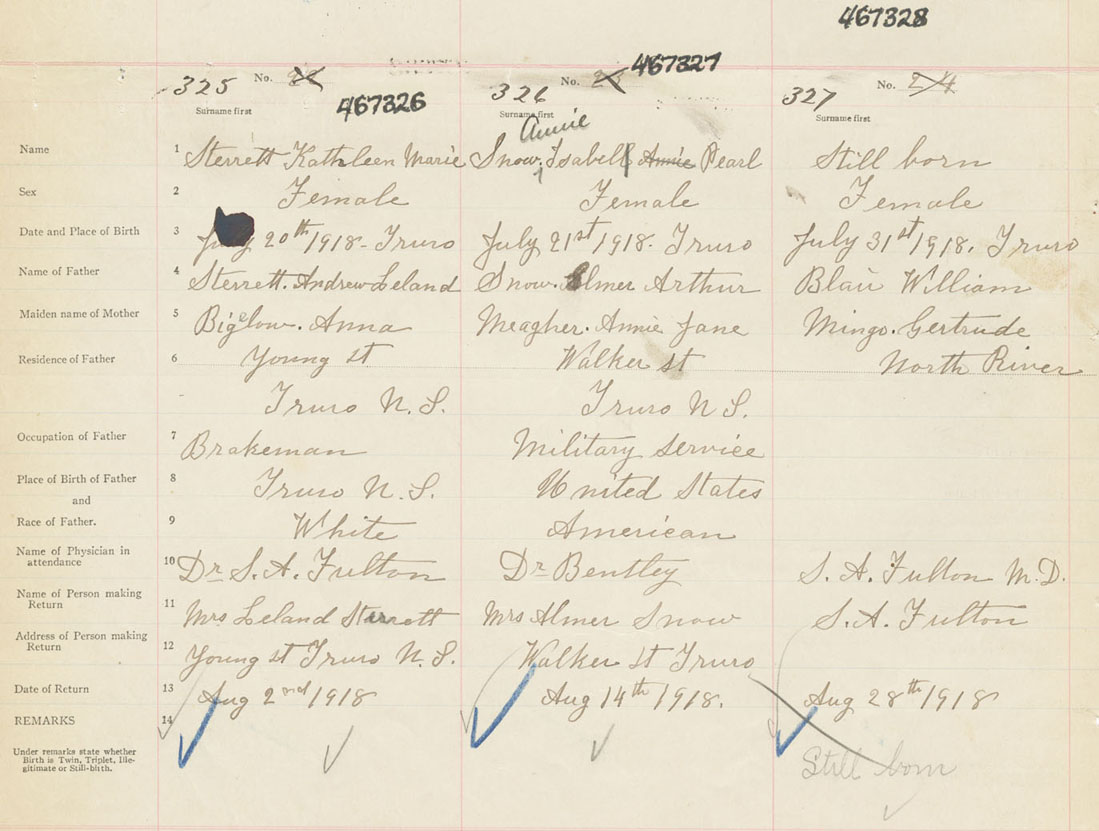 467328
325 No. 22 326 No. 23 467327 327 No. 24
467326
Surname first Surname first Surname first
Annie
Name 1 Sterrett Kathleen Marie Snow. Isabell Annie Pearl Still born
Sex 2 Female Female Female
Date and Place of Birth 3 July 20th 1918 - Truro July 21st 1918. Truro July 31st 1918. Truro
Name of Father 4 Sterrett. Andrew Leland Snow. Almer Arthur Blair William
Maiden name of Mother 5 Bigelow. Anna Meagher. Annie Jane Mingo. Gertrude
Residence of Father 6 Young st Walker st North River
Truro N. S. Truro N S.
Occupation of Father 7 Brakeman Military Service
Place of Birth of Father 8 Truro N. S. United States
and
Race of Father. 9 White American
Name of Physician in
attendance 10 Dr S. A. Fulton Dr Bentley S. A. Fulton M. D.
Name of Person making
Return 11 Mrs Leland Sterrett Mrs Almer Snow S. A. Fulton
Address of Person making
Return 12 Young st Truro N. S. Walker st Truro
Date of Return 13 Aug 2nd 1918 Aug 14th 1918. Aug 28th 1918
REMARKS 14
Under remarks state whether
Birth is Twin, Triplet, Ille-
gitimate or Still-blith.
Still born